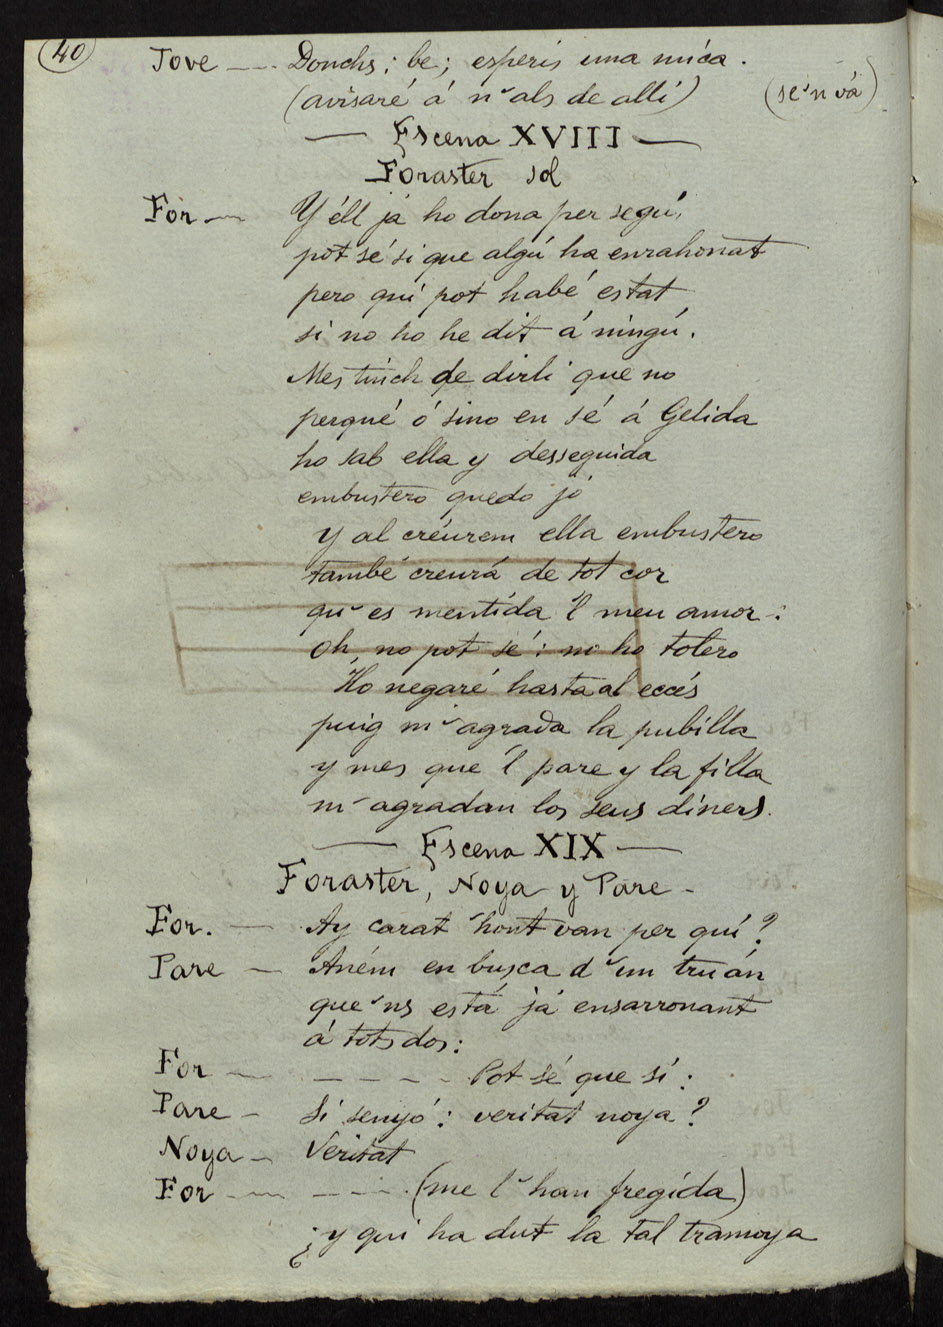 40
Jove — Donchs; be; esperis una mica.
(avisaré á n'als de allí) (se'n vá)
— Escena XVIII —
Foraster sol
For — Y éll já ho dona per segú,
pot sé si que algú ha enrahonat
pero qui pot habé estat
si no ho he dit á ningú.
Mes tinch de dirli que no
perqué ó sino en sé á Gelida
ho sab ella y desseguida
embustero quedo jo
Y al creurem ella embustero
també creurá de tot cor
qu'es mentida 'l meu amor:
Oh, no pot sé: no ho tolero
Ho negaré hasta al eccés
puig m'agrada la pubilla
y mes que 'l pare y la filla
m'agradan los seus diners.
— Escena XIX —
Foraster, Noya y Pare -
For. — Ay carat 'hont van per quí?
Pare — Aném en busca d'un truán
que'ns está já ensarronant
á tots dos:
For — — — — — Pot sé que sí:
Pare — Sí senyó: veritat noya?
Noya — Veritat
For — — — — (me l'han fregida)
¿y qui ha dut la tal tramoya